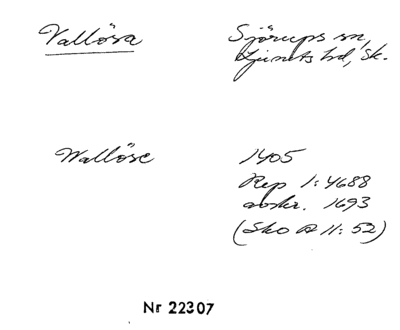 Vallösa
Sjörups sn,
Ljunits hd, Sk.
Wallöse
1405
Rep 1:4688
avskr. 1693
(Sko A 11:52)
Nr 22307